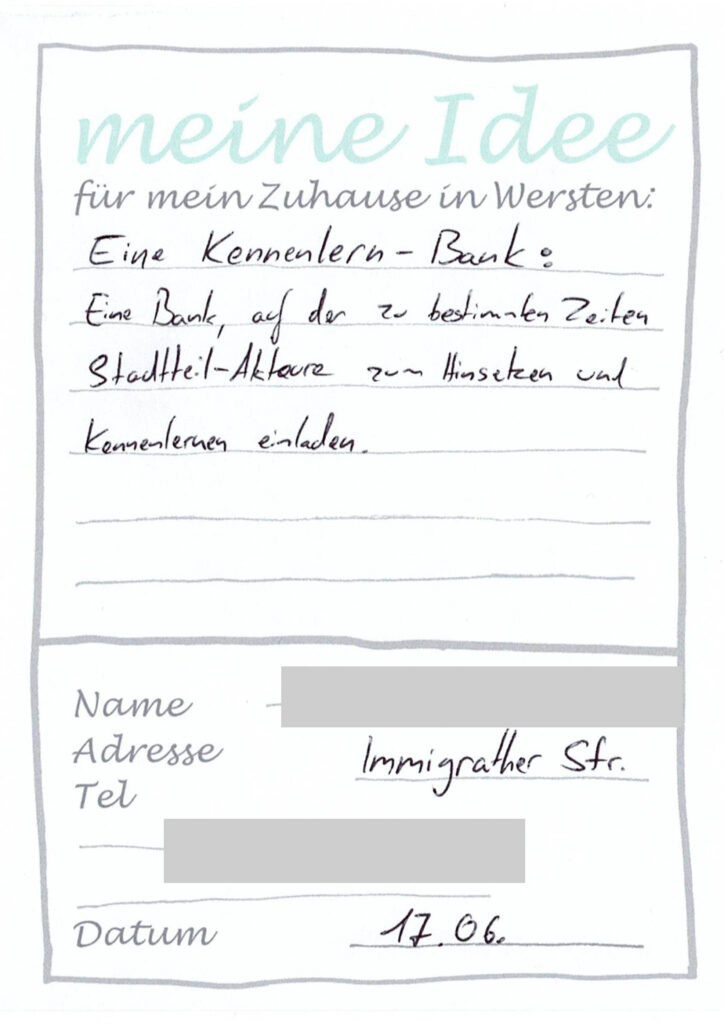 meine Idee
für mein Zuhause in Wersten:
Eine Kennenlern-Bank:
Eine Bank, auf der zu bestimmten Zeiten
Stadtteil-Akteure zum Hinsetzen und
Kennenlernen einladen.
Name
Adresse Immigrather Str.
Tel
Datum 17.06.